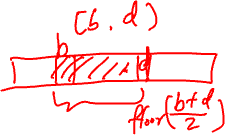 [b, d)
b d
floor(b+d/2)